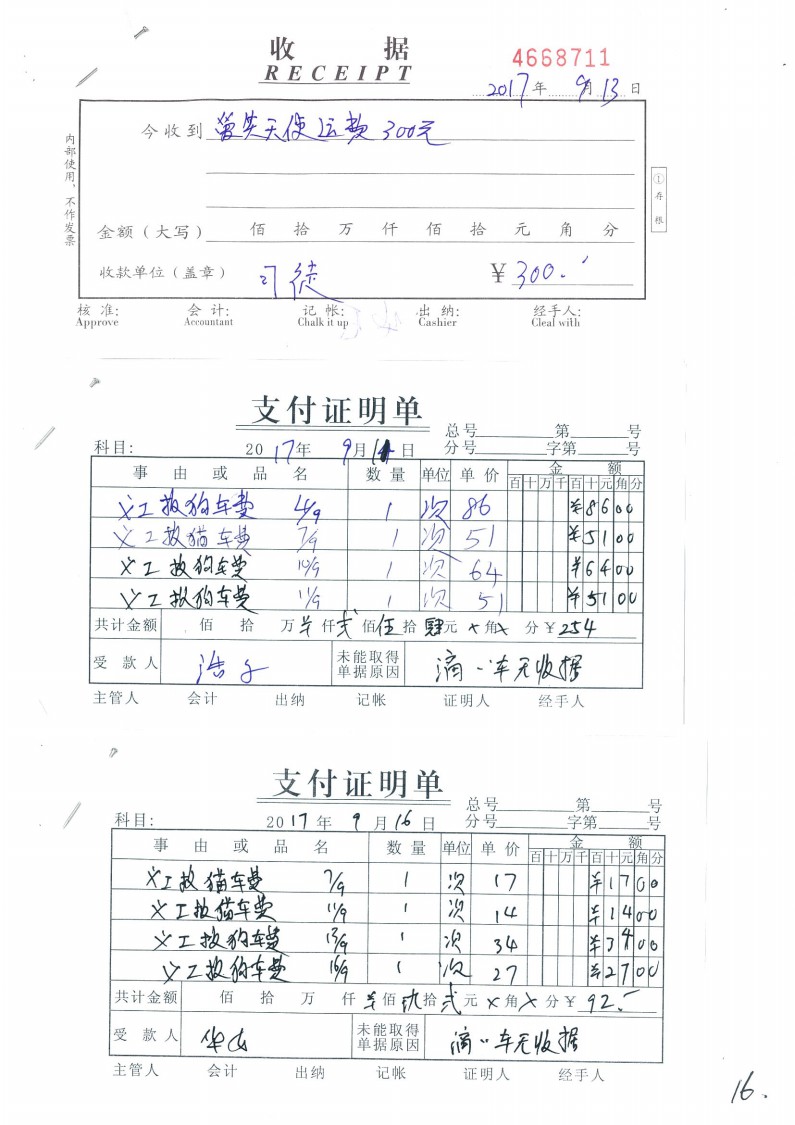 收 据
RECEIPT
4668711
2017年 9月 13日
今收到 天使运费 300元
内部使用，不作发票
①存根
金额（大写） 佰 拾 万 仟 佰 拾 元 角 分
收款单位（盖章） 司徒 ￥300.
核 准: 会 计: 记 帐: 出 纳: 经手人:
Approve Accountant Chalk it up Cashier Cleal with
支付证明单
总号 第 号
科目: 2017年 9月 日 分号 字第 号
事 由 或 品 名 数 量 单位 单 价 金 额
百 十 万 千 百 十 元 角 分
义工救狗车费 4/9 1 次 86 ￥8600
义工救猫车费 7/9 1 次 51 ￥5100
义工救狗车费 10/9 1 次 64 ￥6400
义工救狗车费 11/9 1 次 51 ￥5100
共计金额 佰 拾 万 仟 贰 佰 伍 拾 肆 元 × 角 × 分 ￥254
受 款 人 浩子 未能取得单据原因 滴滴车无收据
主管人 会计 出纳 记帐 证明人 经手人
支付证明单
总号 第 号
科目: 2017年 9月 16日 分号 字第 号
事 由 或 品 名 数 量 单位 单 价 金 额
百 十 万 千 百 十 元 角 分
义工救猫车费 7/9 1 次 17 ￥1700
义工救猫车费 11/9 1 次 14 ￥1400
义工救狗车费 13/9 1 次 34 ￥3400
义工救狗车费 16/9 1 次 27 ￥2700
共计金额 佰 拾 万 仟 佰 玖 拾 贰 元 × 角 × 分 ￥92.-
受 款 人 未能取得单据原因 滴滴车无收据
主管人 会计 出纳 记帐 证明人 经手人
16.